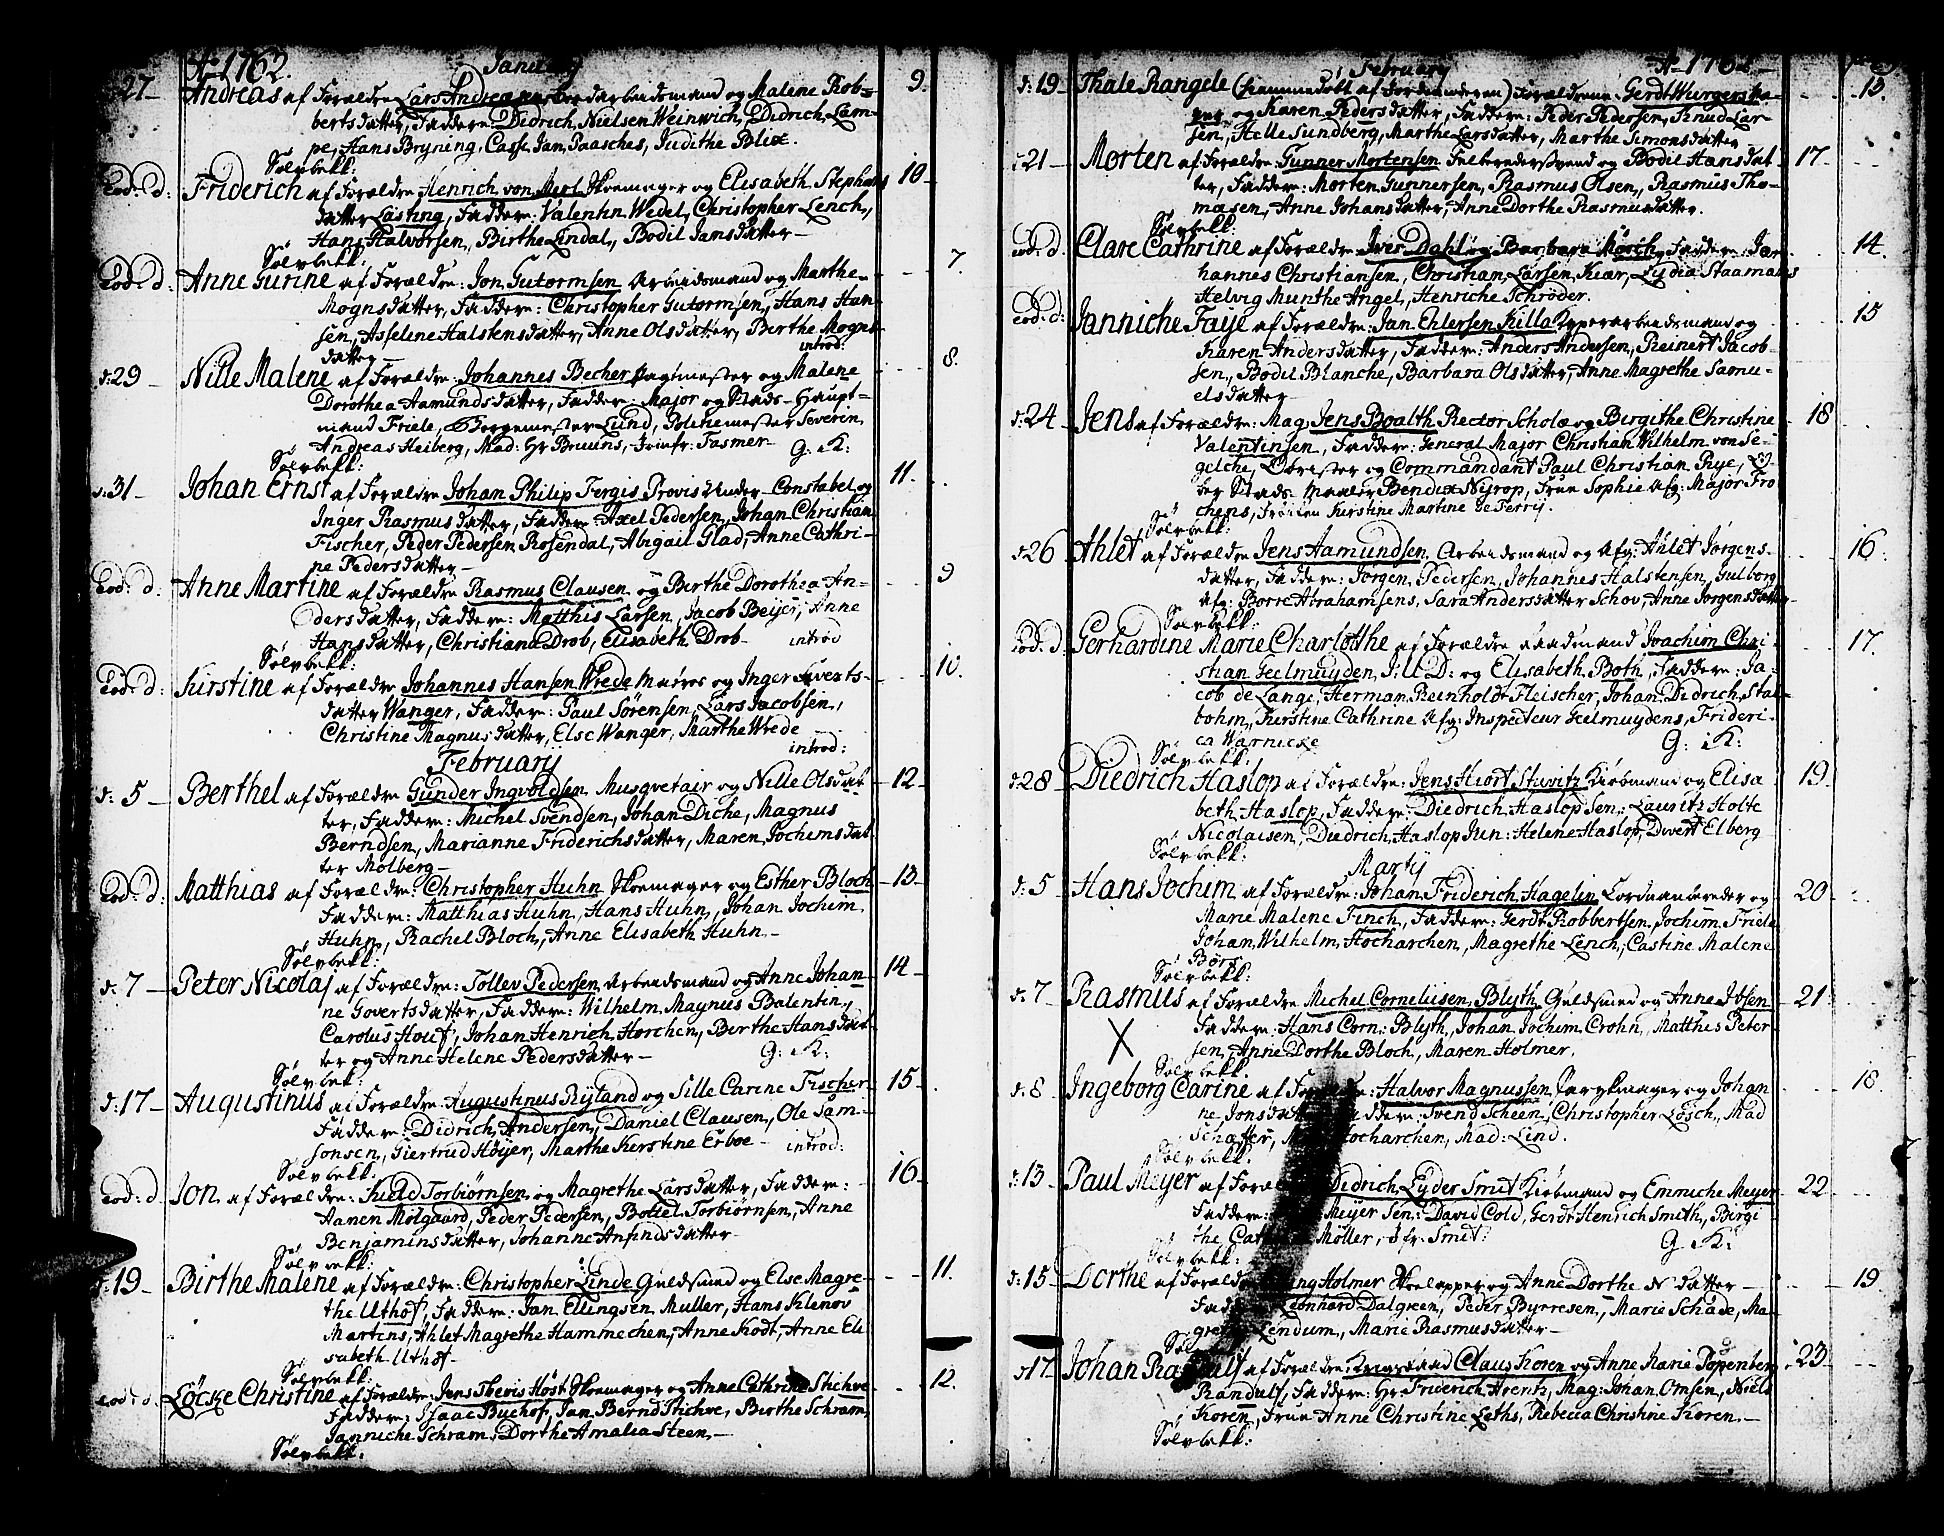 Ao 1762. January
27 Andreas af Forældre Lars Andreasen Arbeidsmand og Malene Rob- 9.
bertsdatter, Faddere: Didrich Nielsen Weinwich, Didrich Lam-
pe, Hans Bryning, Casp. Jan Paasches, Judithe Blix.
Sølvbekk:
Eod: d: Friderich af Forældre Henrich von Merl Skoemager og Elisabeth Stephans 10
datter Lasting, Faddere: Valentin Wedel, Christopher Lench,
Hans Halvorsen, Birthe Lindal, Bodil Jansdatter
Sølvbekk:
Eod: d: Anne Gurine af Forældre: Jon Gutormsen Arbeidsmand og Marthe 7.
Mognsdatter, Faddere: Christopher Gutormsen, Hans Han-
sen, Asseline Halstensdatter, Anne Olsdatter, Berthe Mogns
datter introd:
d: 29 Nille Malene af Forældre: Johannes Becher Bagtmester og Malene 8.
Dorothea Aamundsdatter, Fadder: Major og Stads-Haupt-
mand Friele, Borgemester Lund, Politiemester Severin
Andreas Heiberg, Mad: Hr Bruuns, Jomfr: Fasmer G. K:
Sølvbekk:
d: 31 Johan Ernst af Forældre Johan Philip Fergis Provis Under-Constabel og 11.
Inger Rasmusdatter, Faddere Axel Pedersen, Johan Christian
Fischer, Peder Pedersen Rosendal, Abigail Glad, Anne Cathri-
ne Pedersdatter
Eod: d: Anne Martine af Forældre Rasmus Clausen og Birthe Dorothea An- 9
dersdatter, Faddere: Matthis Larsen, Jacob Beijer, Anne
Hansdatter, Christiana Drob, Elisabeth Drob introd
Sølvbekk:
Eod: d: Kirstine af Forældre Johannes Hansen Wrede Muurer og Inger Siverts- 10.
datter Wanger, Faddere: Paul Sørensen, Lars Jacobsen,
Christine Magnusdatter, Else Wanger, Marthe Wrede
introd:
February
d: 5 Berthel af Forældre Gunder Ingvoldsen Musqvetair og Nille Olsdat 12
ter, Faddere: Michel Svendsen, Johan Diche, Magnus
Berndsen, Marianne Friderichsdatter, Maren Jochemsdat
ter Molberg
Eod: d: Matthias af Forældre: Christopher Huhn Skoemager og Esther Bloch 13
Faddere: Matthias Huhn, Hans Huhn, Johan Jochim
Huhn, Rachel Bloch, Anne Elisabeth Huhn
Sølvbekk:
d: 7 Peter Nicolaj af Forældre: Tollev Pedersen Arbeidsmand og Anne Johan 14
ne Govertsdatter, Faddere: Wilhelm Magnus Balentin,
Carolus Houf, Johan Henrich Horchen, Birthe Hansdat
ter og Anne Helene Pedersdatter G. K:
Sølvbek:
d: 17 Augustinus af Forældre Augustinus Ryland og Sille Carine Fischer 15
Faddere: Didrich Andersen, Daniel Clausen, Ole Sam-
sonsen, Giertrud Høijer, Marthe Kirstine Erboe introd:
Sølvbekk:
Eod: d Jon af Forældre: Kield Torbiørnsen og Magrethe Larsdatter, Fadder: 16
Aanen Molgaard, Peder Pedersen, Bottel Torbiørnsen, Anne
Benjaminsdatter, Johanne Anfindsdatter
Sølvbekk:
d: 19 Birthe Malene af Forældre: Christopher Linde Guldsmed og Else Magre- 11.
the Uthof, Faddere: Jan Ellingsen Muller, Hans Klenov
Martens, Ahlet Magrethe Hammechen, Anne Kodt, Anne Eli
sabeth Uthof
Sølvbekk:
eod: d. Løcke Christine af Forældre: Jens Thevis Høst Skoemager og Anne Cathrine Stichve 12.
Faddere: Isaac Buchof, Jan Bernd Stichve, Birthe Schram,
Janniche Schram, Dorthe Amalia Steen
Sølvbekk:
February Ao 1762
d: 19 Thale Rangele (hiemmedøbt af Jordemoderen) Forældrene Gerdt Wurgers
og Karen Pedersdatter, Faddere: Peder Pedersen, Knud Lar- 13.
sen, Helle Sundberg, Marthe Larsdatter, Marthe Simonsdatter
d: 21 Morten af Forældre Gunner Mortensen Feltberedersvend og Bodil Hansdat 17
ter, Faddere: Morten Gunnersen, Rasmus Olsen, Rasmus Tho-
masen, Anne Johansdatter, Anne Dorthe Rasmusdatter.
Sølvbekk:
eod: d: Clare Cathrine af Forældre Iver Dahl og Barbara Mørch, Faddere: Jo- 14.
hannes Christiansen, Christian Larsen Kiær, Lydia Staamans
Helvig Munthe Angel, Henriche Schrøder.
Eod: d: Janniche Faye af Forældre: Jan Ehlersen Killa Kyperarbeidsmand og 15
Karen Andersdatter, Faddere: Anders Andersen, Reinert Jacob-
sen, Bodil Blanche, Barbara Olsdatter, Anne Magrethe Samu-
elsdatter
d: 24 Jens af Forældre: Mag. Jens Boalth Rector Scholæ og Birgithe Christine 18
Valentinsen, Faddere: General Major Christian Wilhelm von Se-
gelche, Obrister og Commandant Paul Christian Rye,
Stads Maaler Bendix Nyrop, Frue Sophie Afg: Major Fro
chens, Frøiken Kirstine Martine de Ferry.
Sølvbekk:
d: 26 Ahlet af Forældre Jens Aamundsen Arbeidsmand og Afg: Ahlet Jørgens- 16.
datter, Faddere: Jørgen Pedersen, Johannes Halstensen, Gulborg
Afg: Borre Abrahamsens, Sara Andersdatter Schov, Anne Jørgensdatter
Sølvbekk:
Eod: d: Gerhardine Marie Charlotthe af Forældre Raadmand Joachim Chri- 17.
stian Geelmuyden J: U: D: og Elisabeth Both, Faddere: Ja-
cob de Lange, Herman Reinholdt Fleischer, Johan Didrich Stal-
bohm, Kirstine Cathrine Afg: Inspecteur Geelmuydens, Frideri-
ca Warnicke G: K:
Sølvbekk:
d: 28 Diedrich Haslop af Forældre: Jens Hiort Stuvitz Kiøbmand og Elisa 19.
beth Haslop, Faddere: Diedrich Haslop Sen:, Lauritz Holte
Nicolaisen, Diedrich Haslop Jun: Helene Haslop, Divert Elberg
Sølvbekk:
Martij
d: 5 Hans Jochim af Forældre: Johan Friderich Hagelin Corduanbereder og 20
Marie Malene Finch, Faddere: Gerdt Robbertsen, Jochim Friele
Johan Wilhelm Hocharchen, Magrethe Lench, Castine Malene
Børs
Sølvbekk:
d: 7 Rasmus af Forældre Michel Corneliisen Blyth Guldsmed og Anne Ibsen 21
X Faddere: Hans Corn: Blyth, Johan Jochim Crohn, Matthis Peter-
sen, Anne Dorthe Bloch, Maren Holmer.
Sølvbekk:
d: 8 Ingeborg Carine af Forældre: Halvor Magnussen Parykmager og Johan 18.
ne Jonsdatter, Faddere: Svend Scheen, Christopher Løsch, Mad
Schatter, Hocharchen, Mad: Lind.
Sølvbekk:
d: 13 Paul Meyer af Forældre Didrich Eyder Smit Kiøbmand og Emmiche Meyer 22
Faddere: Meyer Sen: David Cold, Gerdt Henrich Smith, Birgi
the Cathrine Møller, Jfr: Smit G. K:
Sølvbekk:
d: 15 Dorthe af Forældre Holmer Skoelapper og Anne Dorthe N datter 19
Faddere Leonhard Dalgreen, Peder Byrresen, Marie Schade, Ma-
grethe Lendum, Marie Rasmusdatter
Sølvbekk:
d: 17 Johan Randulf af Forældre: Krigsraad Claus Koren og Anne Marie Poppenberg 23
Randulf, Faddere: Hr: Friderich Hoertz, Mag: Johan Omsen, Niels
Koren, Frue Anne Christine Loths, Rebecca Christine Koren.
Sølvbekk: